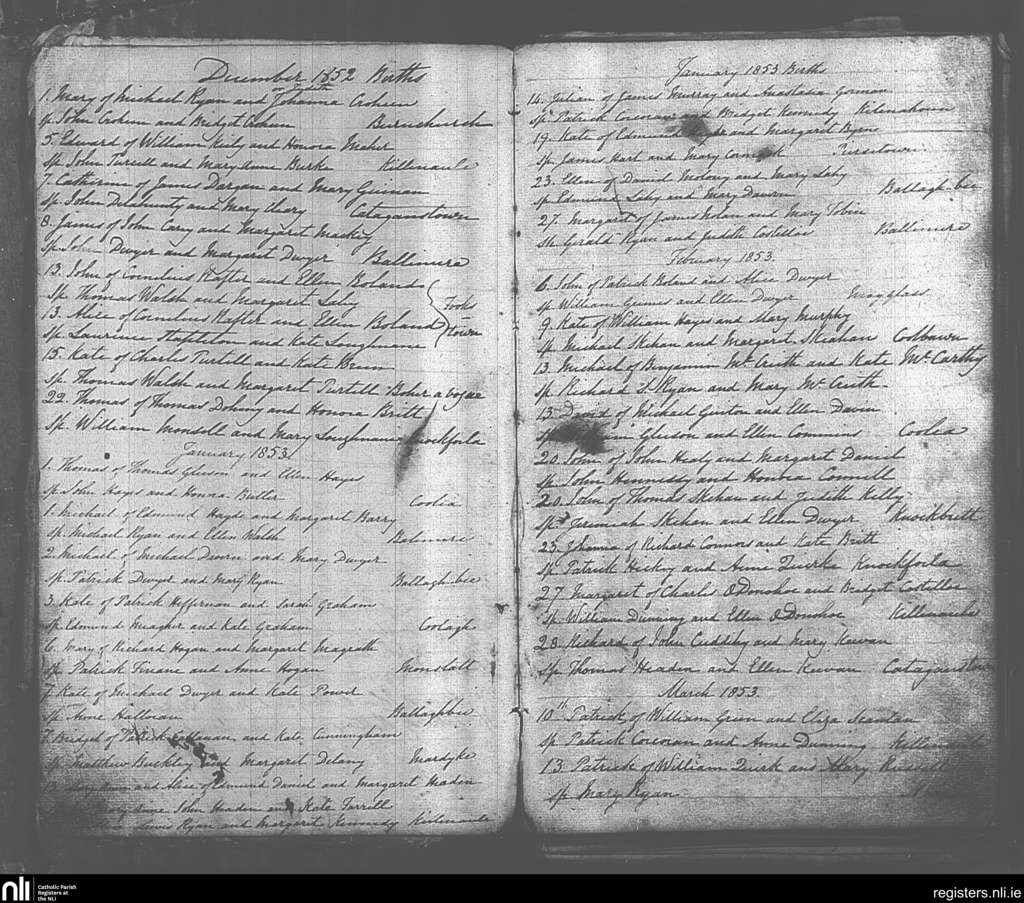 December 1852 Births
or Judith
1. Mary of Michael Ryan and Johanna Crokeen
sp. John Crokeen and Bridget Buruchurch
5. Edward of William Kiely and Honora Maher
Sp. John Tirrell and Mary Anne Burke Killenaule
7. Catherine of James Dargan and Mary Guinan
Sp. John and Mary Cleary Cataganstown
8. James of John Carey and Margaret Mackey
Sp. John Dwyer and Margaret Dwyer Ballinure
13. John of Cornelius Rafter and Ellen Boland
Sp. Thomas Walsh and Margaret Fooks
13. Alice of Cornelius Rafter and Ellen Boland town
Sp. Laurence Stapleton and Kate Loughnane
15. Kate of Charles Turtell and Kate
Sp. Thomas Walsh and Margaret Turtell Boher a bogue
22. Thomas of Thomas Dohony and Honora Britt
Sp. William Monsell and Mary Loughnane Knockforla
January 1853
1. Thomas of Thomas Gleeson and Ellen Hayes
Sp. John Hays and Honora Butler Coolia
1. Michael of Edmund Hayde and Margaret Barry
Sp. Michael Ryan and Ellen Walsh Balinure
2. Michael of Michael Davern and Mary Dwyer
Sp. Patrick Dwyer and Mary Ryan Ballagh-bee
3. Kate of Patrick Heffernan and Sarah Graham
Sp. Edmund Meagher and Kate Graham Coolagh
6. Mary of Richard Hogan and Margaret Magrath
Sp. Patrick Finane and Anne Hogan
7. Kate of Michael Dwyer and Kate Power
Sp. Anne Halloran Ballaghbee
7. Bridget of Patrick and Kate Cunningham
Sp. Matthew Buckley and Margaret Delany Mardyke
and Alice of Edmund Daniel and Margaret Maden
Anne John Headen and Kate Farrell
Lewis Ryan and Margaret Kennedy Killenaule
January 1853 Births
14. Julian of James Murray and Anastasia Gorman
Sp. Patrick Corcoran and Bridget Kennedy
19. Kate of Edmund and Margaret Byrn
Sp. James Hart and Mary
23. Ellen of Daniel Molony and Mary Lahy
Sp Edmund Lahy and Mary Davern Ballagh-bee
27. Margaret of James Nolan and Mary Tobin
Sp. Gerald Ryan and Judith Costelloe Ballinure
February 1853.
6. John of Patrick Boland and Alice Dwyer
Sp William and Ellen Dwyer Moyglass
9. Kate of William Hayes and Mary Murphy
Sp Michael Skehan and Margaret Skeahan Coolbawn
13 Michael of Benjamin McCruith and Kate McCarthy
Sp Richard S. Ryan and Mary McCruith
13 David of Michael and Ellen Davin
Gleeson and Ellen Commins Coolea
20. John of John Healy and Margaret Daniel
Sp John Hennessy and Honora Connell
20. John of Thomas Skehan and Judith Kelly
Sp. Jeremiah Skehan and Ellen Dwyer Knockbritt
23. Johanna of Richard Connors and Kate Britt
Sp Patrick Hickey and Anne Quirke Knockforla
27. Margaret of Charles O'Donohoe and Bridget Costelloe
Sp. William Dunning and Ellen O'Donohoe Killenaule
28. Richard of John Cuddihy and Mary Kirwan
Sp Thomas Headen and Ellen Kirwan Cataganstown
March 1853.
10th Patrick of William Green and Eliza Scanlan
Sp. Patrick Corcoran and Anne Dunning Killenaule
13. Patrick of William Quirk and Mary
Sp Mary Ryan
nli Catholic Parish
Registers at
the NLI
registers.nli.ie